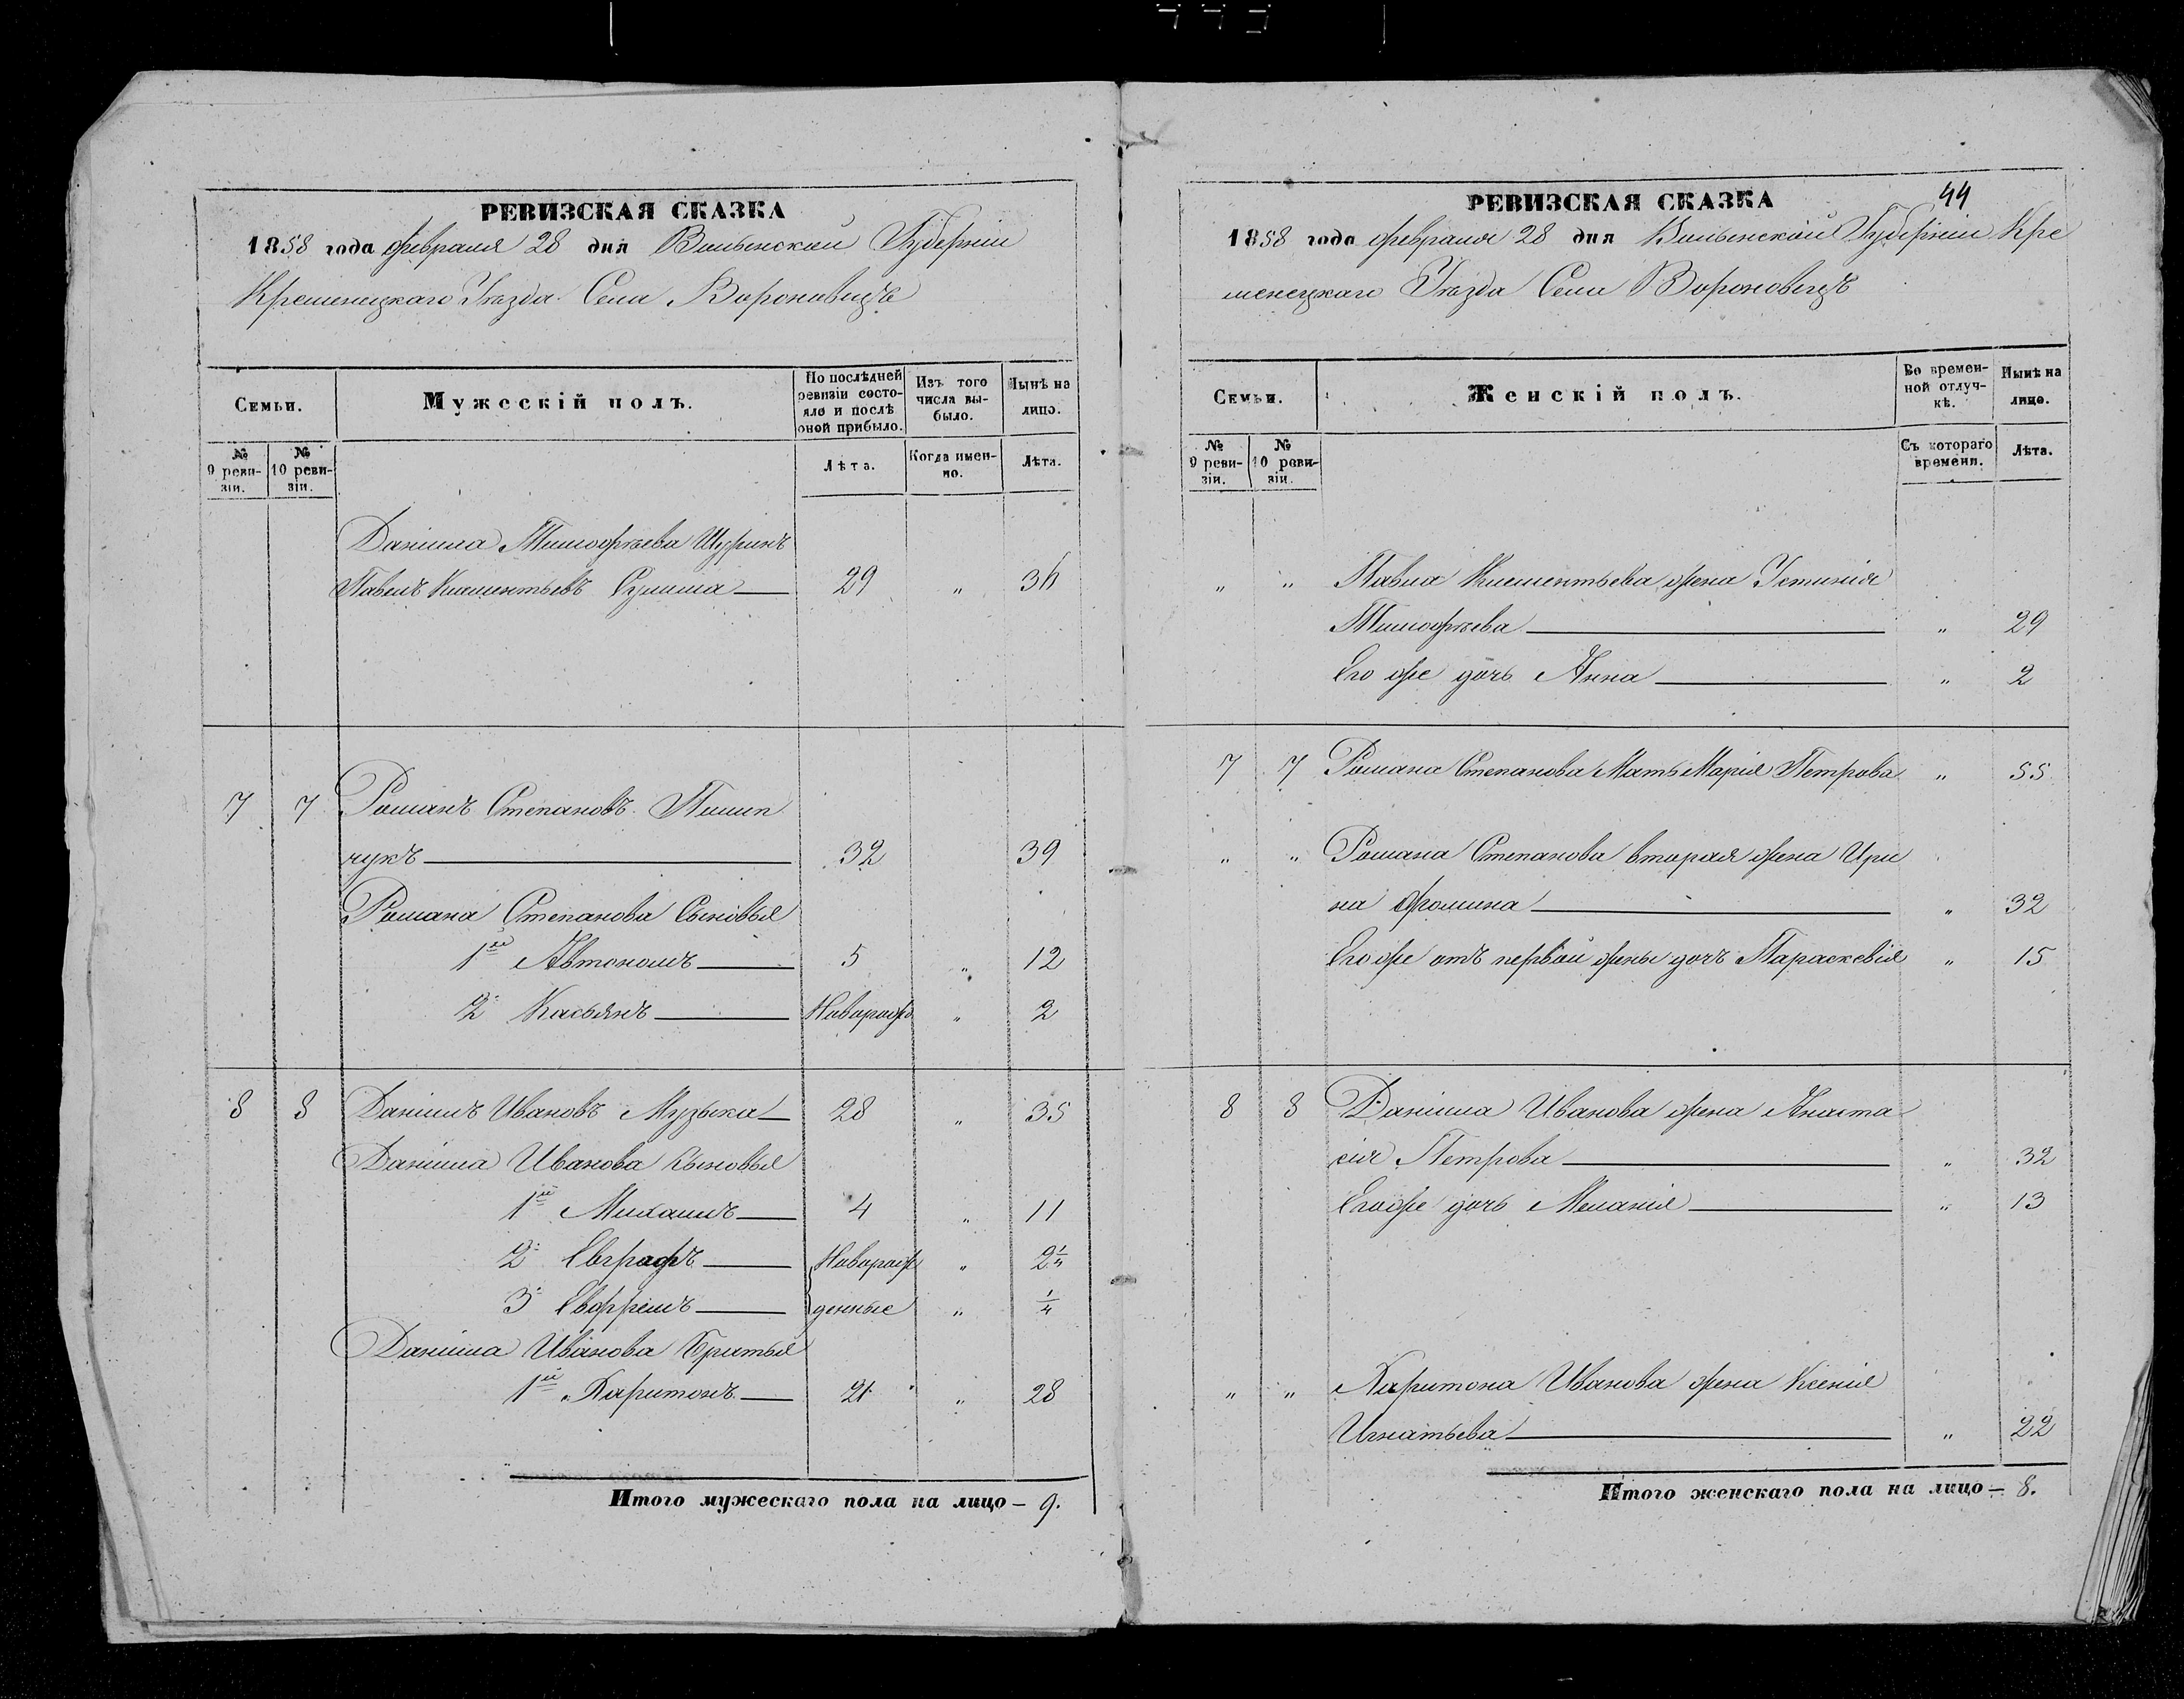 РЕВИЗСКАЯ СКАЗКА
1858 года февраля 28 дня Волынской Губерніи
Кременецкаго Уезда Села Вороновецъ
Семьи.
Мужескій полъ.
По послѣдней ревизіи состояло и послѣ оной прибыло.
Изъ того числа выбыло.
Нынѣ на лицо.
№ 9 ревизіи.
№ 10 ревизіи.
Лѣта.
Когда именно.
Лѣта.
Даніила Тимофѣева Шуринъ
Павелъ Климентьевъ Сулима 29 " 36
7 7 Романъ Степановъ Пилип
чукъ 32 39
Романа Степанова Сыновья
1й Автономъ 5 " 12
2й Касьянъ Новорожд " 2
8 8 Даніилъ Ивановъ Музыка 28 " 35
Даніила Иванова сыновья
1й Михаилъ 4 " 11
2й Евграфъ Новорож " 2¼
3й Евфремъ денные " ¼
Даніила Иванова братья
1й Харитонъ 21 " 28
Итого мужескаго пола на лицо — 9.
44
РЕВИЗСКАЯ СКАЗКА
1858 года февраля 28 дня Волынской Губерніи Кре
менецкаго Уезда Села Вороновецъ
Семьи.
Женскій полъ.
Во временной отлучкѣ.
Нынѣ на лицо.
№ 9 ревизіи.
№ 10 ревизіи.
Съ котораго времени.
Лѣта.
" " Павла Климентьева жена Устинія
Тимофѣева " 29
Его же дочь Анна " 2
7 7 Романа Степанова Мать Марія Петрова " 55
" " Романа Степанова вторая жена Ири
на Фомина " 32
Его же отъ первой жены дочь Параскевія " 15
8 8 Даніила Иванова жена Анаста
сія Петрова " 32
Его же дочь Меланія " 13
" " Харитона Иванова жена Ксенія
Игнатьева " 22
Итого женскаго пола на лицо — 8.